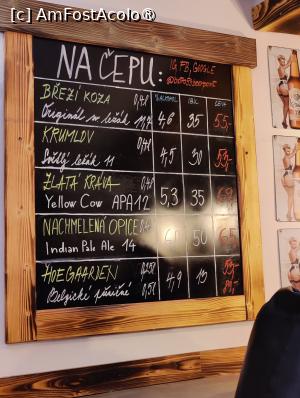 [c] AmFostAcolo®
NA ČEPU:
IG, FB, GOOGLE
ALKOHOL IBU CENA
BŘEZÍ KOZA 0,4l
Originál m ležák 11,4 4,6 35 55,-
KRUMLOV 0,4l
Světlý ležák 11 4,5 30 53,-
ZLATÁ KRÁVA 0,4l
Yellow Cow APA 12 5,3 35
NACHMELENÁ OPICE 0,4l
Indian Pale Ale 14 50 65
HOEGAARDEN 0,25l
Belgické pšeničné 0,5l 4,9 15